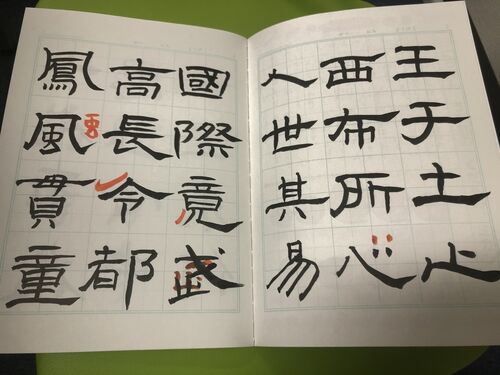 王于土止
西布所心
人世其易
國際竟武
高長令都
鳳風貫童